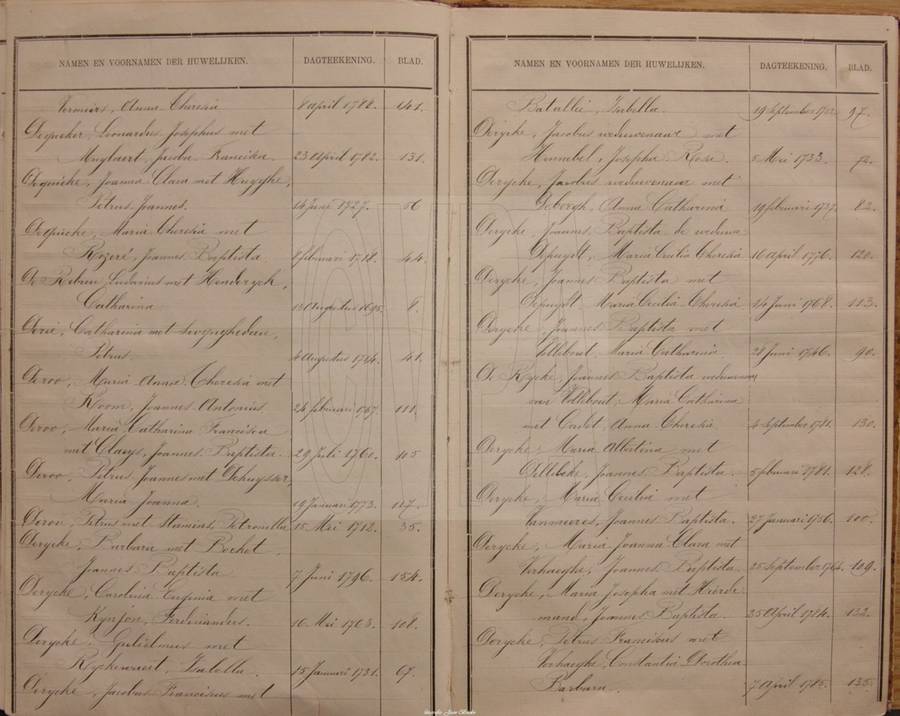 NAMEN EN VOORNAMEN DER HUWELIJKEN. DAGTEEKENING. BLAD.
Anna Theresia 8 april 1788. 141.
Dequeker, Leonardus Josephus met
Muylaert, Jacoba Francisca 23 april 1782. 131.
Joanna Clara met Huyghe,
Petrus Joannes. 14 juni 1727. 56
Maria Theresia met
Rozeré, Joannes Baptista 8 februari 1718. 44.
met Henderyck,
Catharina 1695.
Catharina met
Petrus. 4 augustus 1714. 41.
Deroo, Maria Anna Theresia met
Kloom, Joannes Antonius. 24 februari 1767. 111.
Deroo, Maria Catharina Francisca
met Claeys, Joannes Baptista. 29 juli 1760. 105
Deroo, Petrus Joannes met Dehuysser,
Maria Joanna. 19 januari 1773. 117.
Deroo, Petrus met Petronella 15 Mei 1712. 35.
Derycke, Barbara met Bochet,
Joannes Baptista 7 juni 1796. 154.
Derycke, Carolina Eugenia met
Kynjon, Ferdinandus. 10 Mei 1763. 108.
Derycke, Gulielmus met
Ryckewaert, Isabella. 15 januari 1731. 67.
Derycke, Jacobus Franciscus met
NAMEN EN VOORNAMEN DER HUWELIJKEN. DAGTEEKENING. BLAD.
Bataillie, Isabella. 19 September 97.
Derycke, Jacobus weduwenaar met
Hummbel, Josepha Rosa. 5 Mei 1733. 72.
Derycke, Jacobus weduwenaar met
Deborgh, Anna Catharina 19 februari 82.
Derycke, Joannes Baptista de weduwe
Depuydt, Maria Cecilia Theresia 16 april 1776. 120.
Derycke, Joannes Baptista met
Depuydt Maria Cecilia Theresia 14 juni 1768. 113.
Derycke, Joannes Baptista met
Maria Catharina 28 juni 1746. 90.
De Rycke, Joannes Baptista weduwenaar
van Maria Catharina
met Anna Theresia 4 September 1781. 130.
Derycke, Maria Albertina met
Dellibeke, Joannes Baptista. 5 februari 1781. 128.
Derycke, Maria Cecilia met
Vanmeeres, Joannes Baptista. 27 januari 1756. 100.
Derycke, Maria Joanna Clara met
Verhaeghe, Joannes Baptista. 25 September 1764. 109.
Derycke, Maria Josepha met Hierde
mand, Joannes Baptista. 25 april 1784. 132.
Derycke, Petrus Franciscus met
Verhaeghe, Constantia Dorothea
Barbara. 7 april 1785. 135.